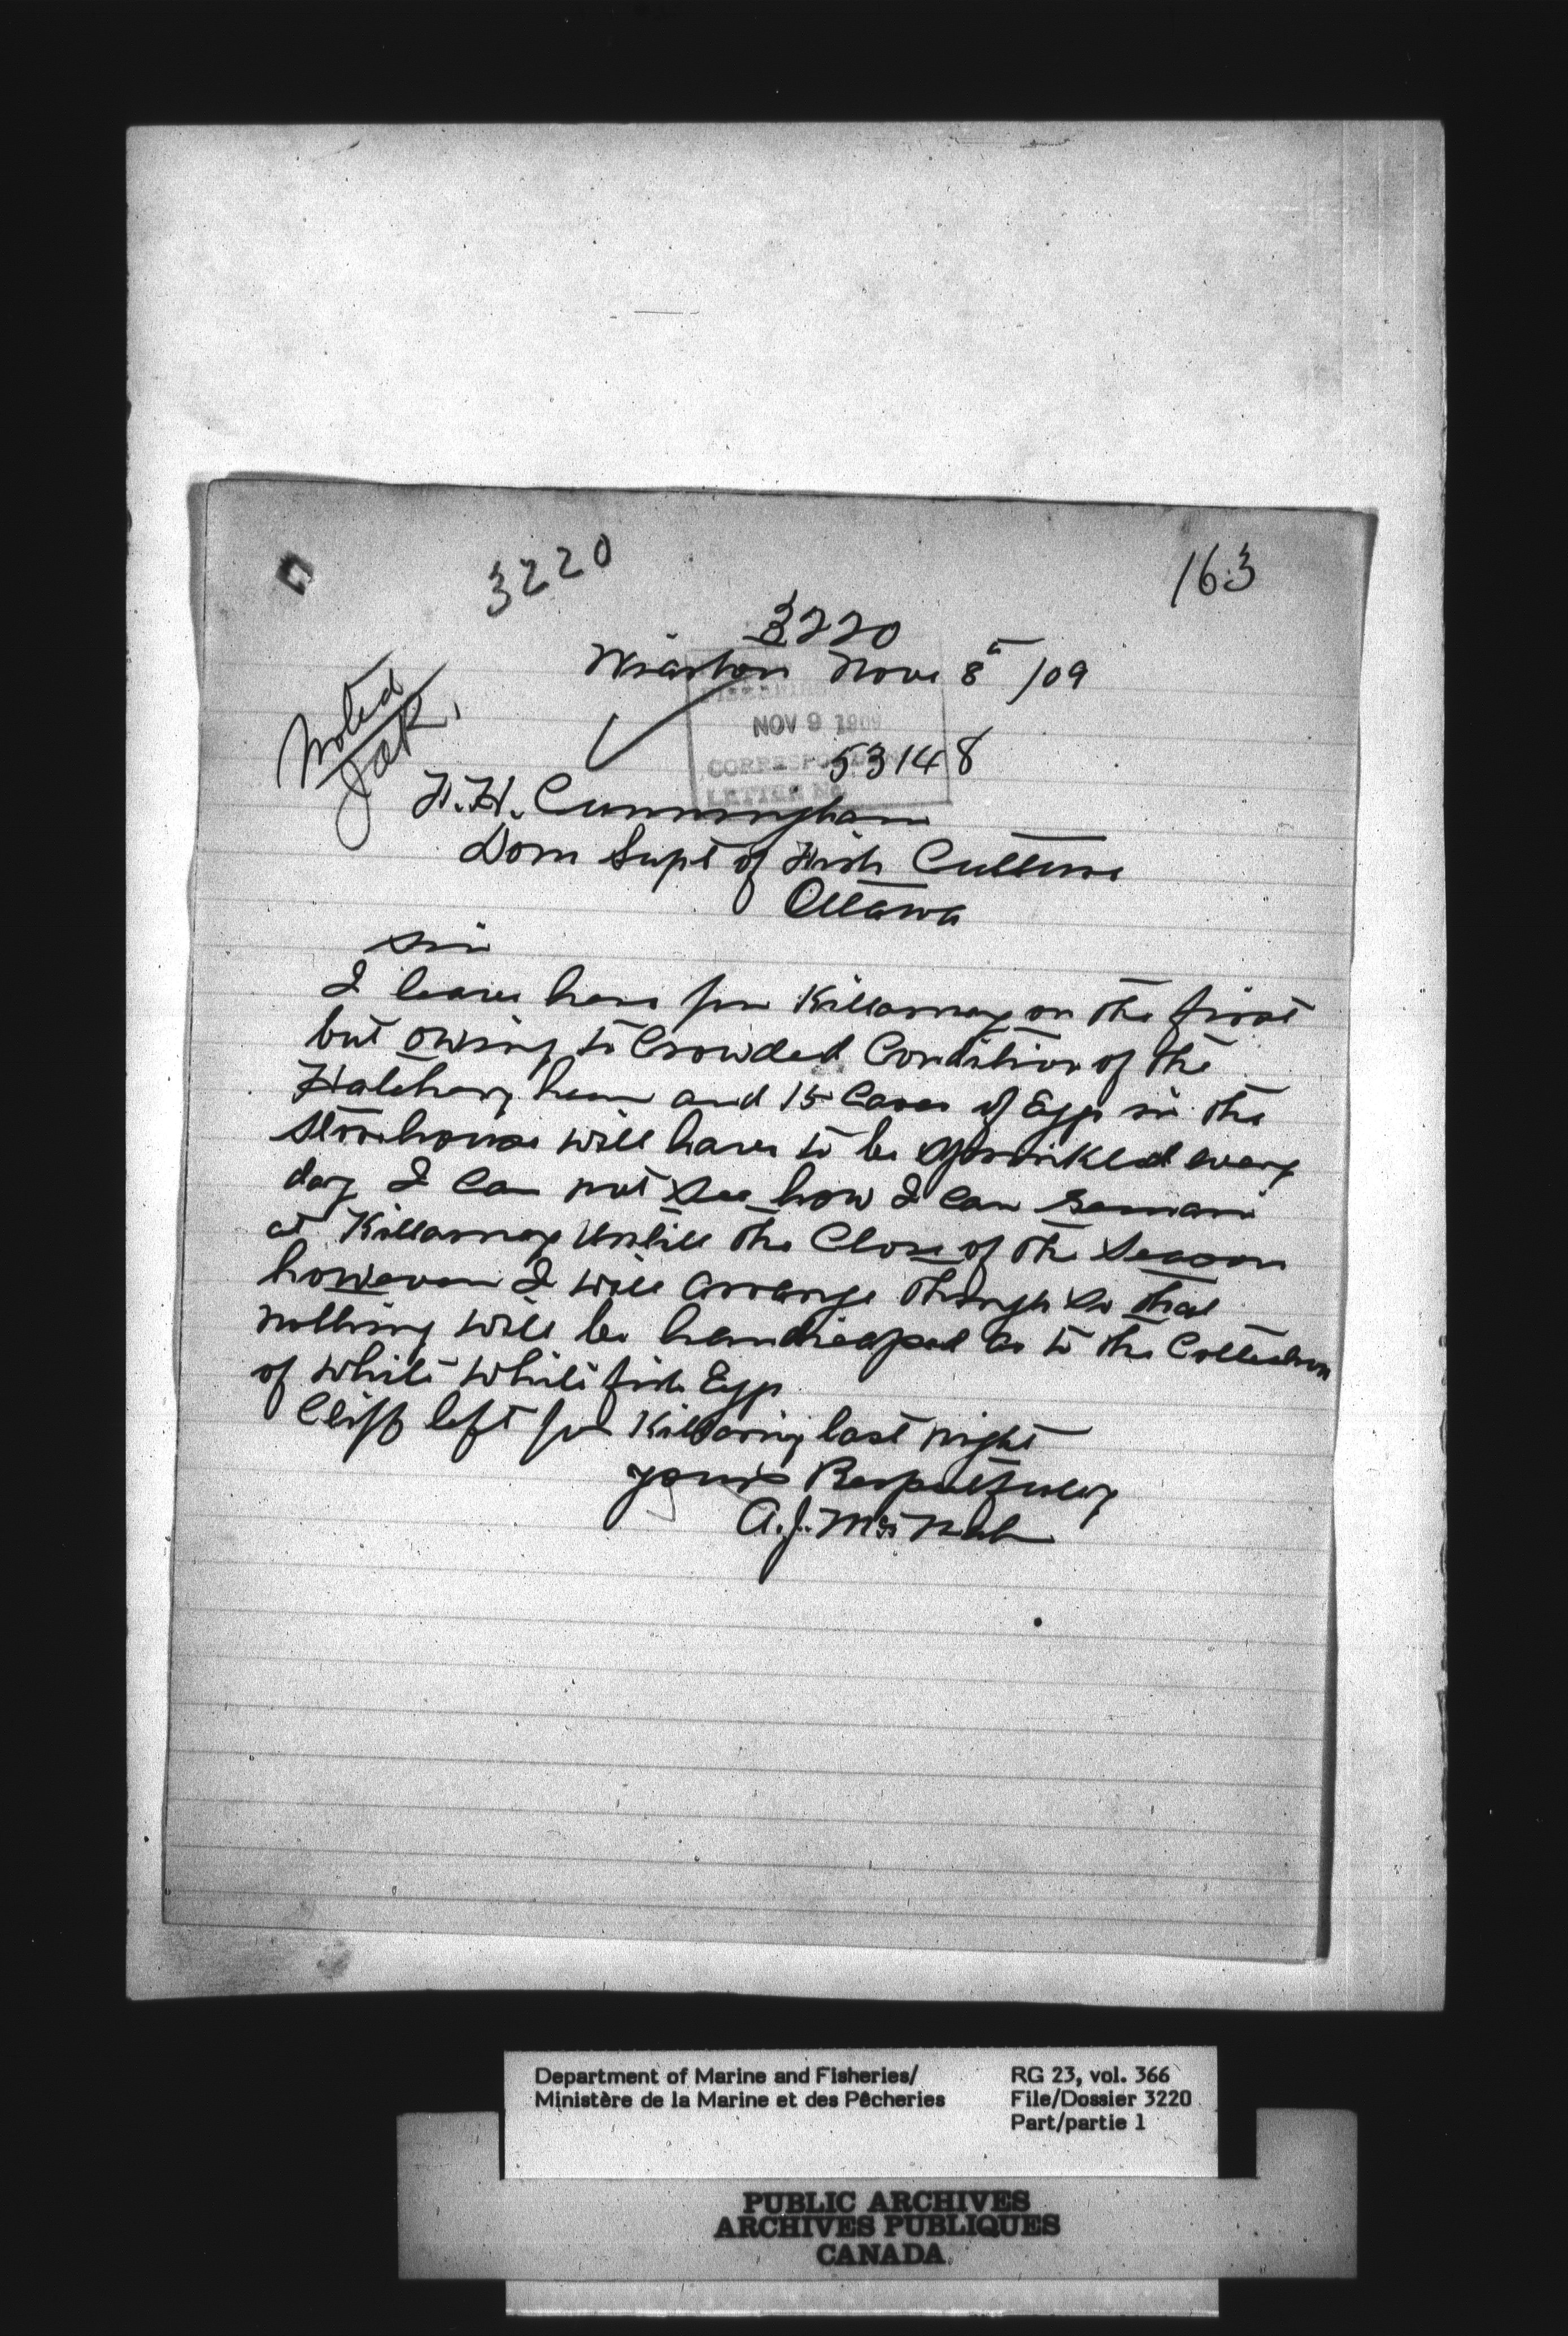 3220
163
3220
Wiarton Nov 8th /09
Noted
NOV 9 1909
53148
CORRESPONDENCE
LETTER No.
F.H. Cunningham
Dom Supt of Fish Culture
Ottawa
Sir
I leave here for Killarney on the first
but owing to Crowded Condition of the
Hatchery here and 15 Cases of Eggs in the
storehouse will have to be sprinkled every
day I Can not see how I Can remain
at Killarney Untill the Close of the Season
however I will arrange things so that
nothing will be handicaped as to the Collection
of white white fish Eggs
Cliff left for Killarney last night
yours Respectfuley
A.J. McNab
Department of Marine and Fisheries/
Ministère de la Marine et des Pêcheries
RG 23, vol. 366
File/Dossier 3220
Part/partie 1
PUBLIC ARCHIVES
ARCHIVES PUBLIQUES
CANADA